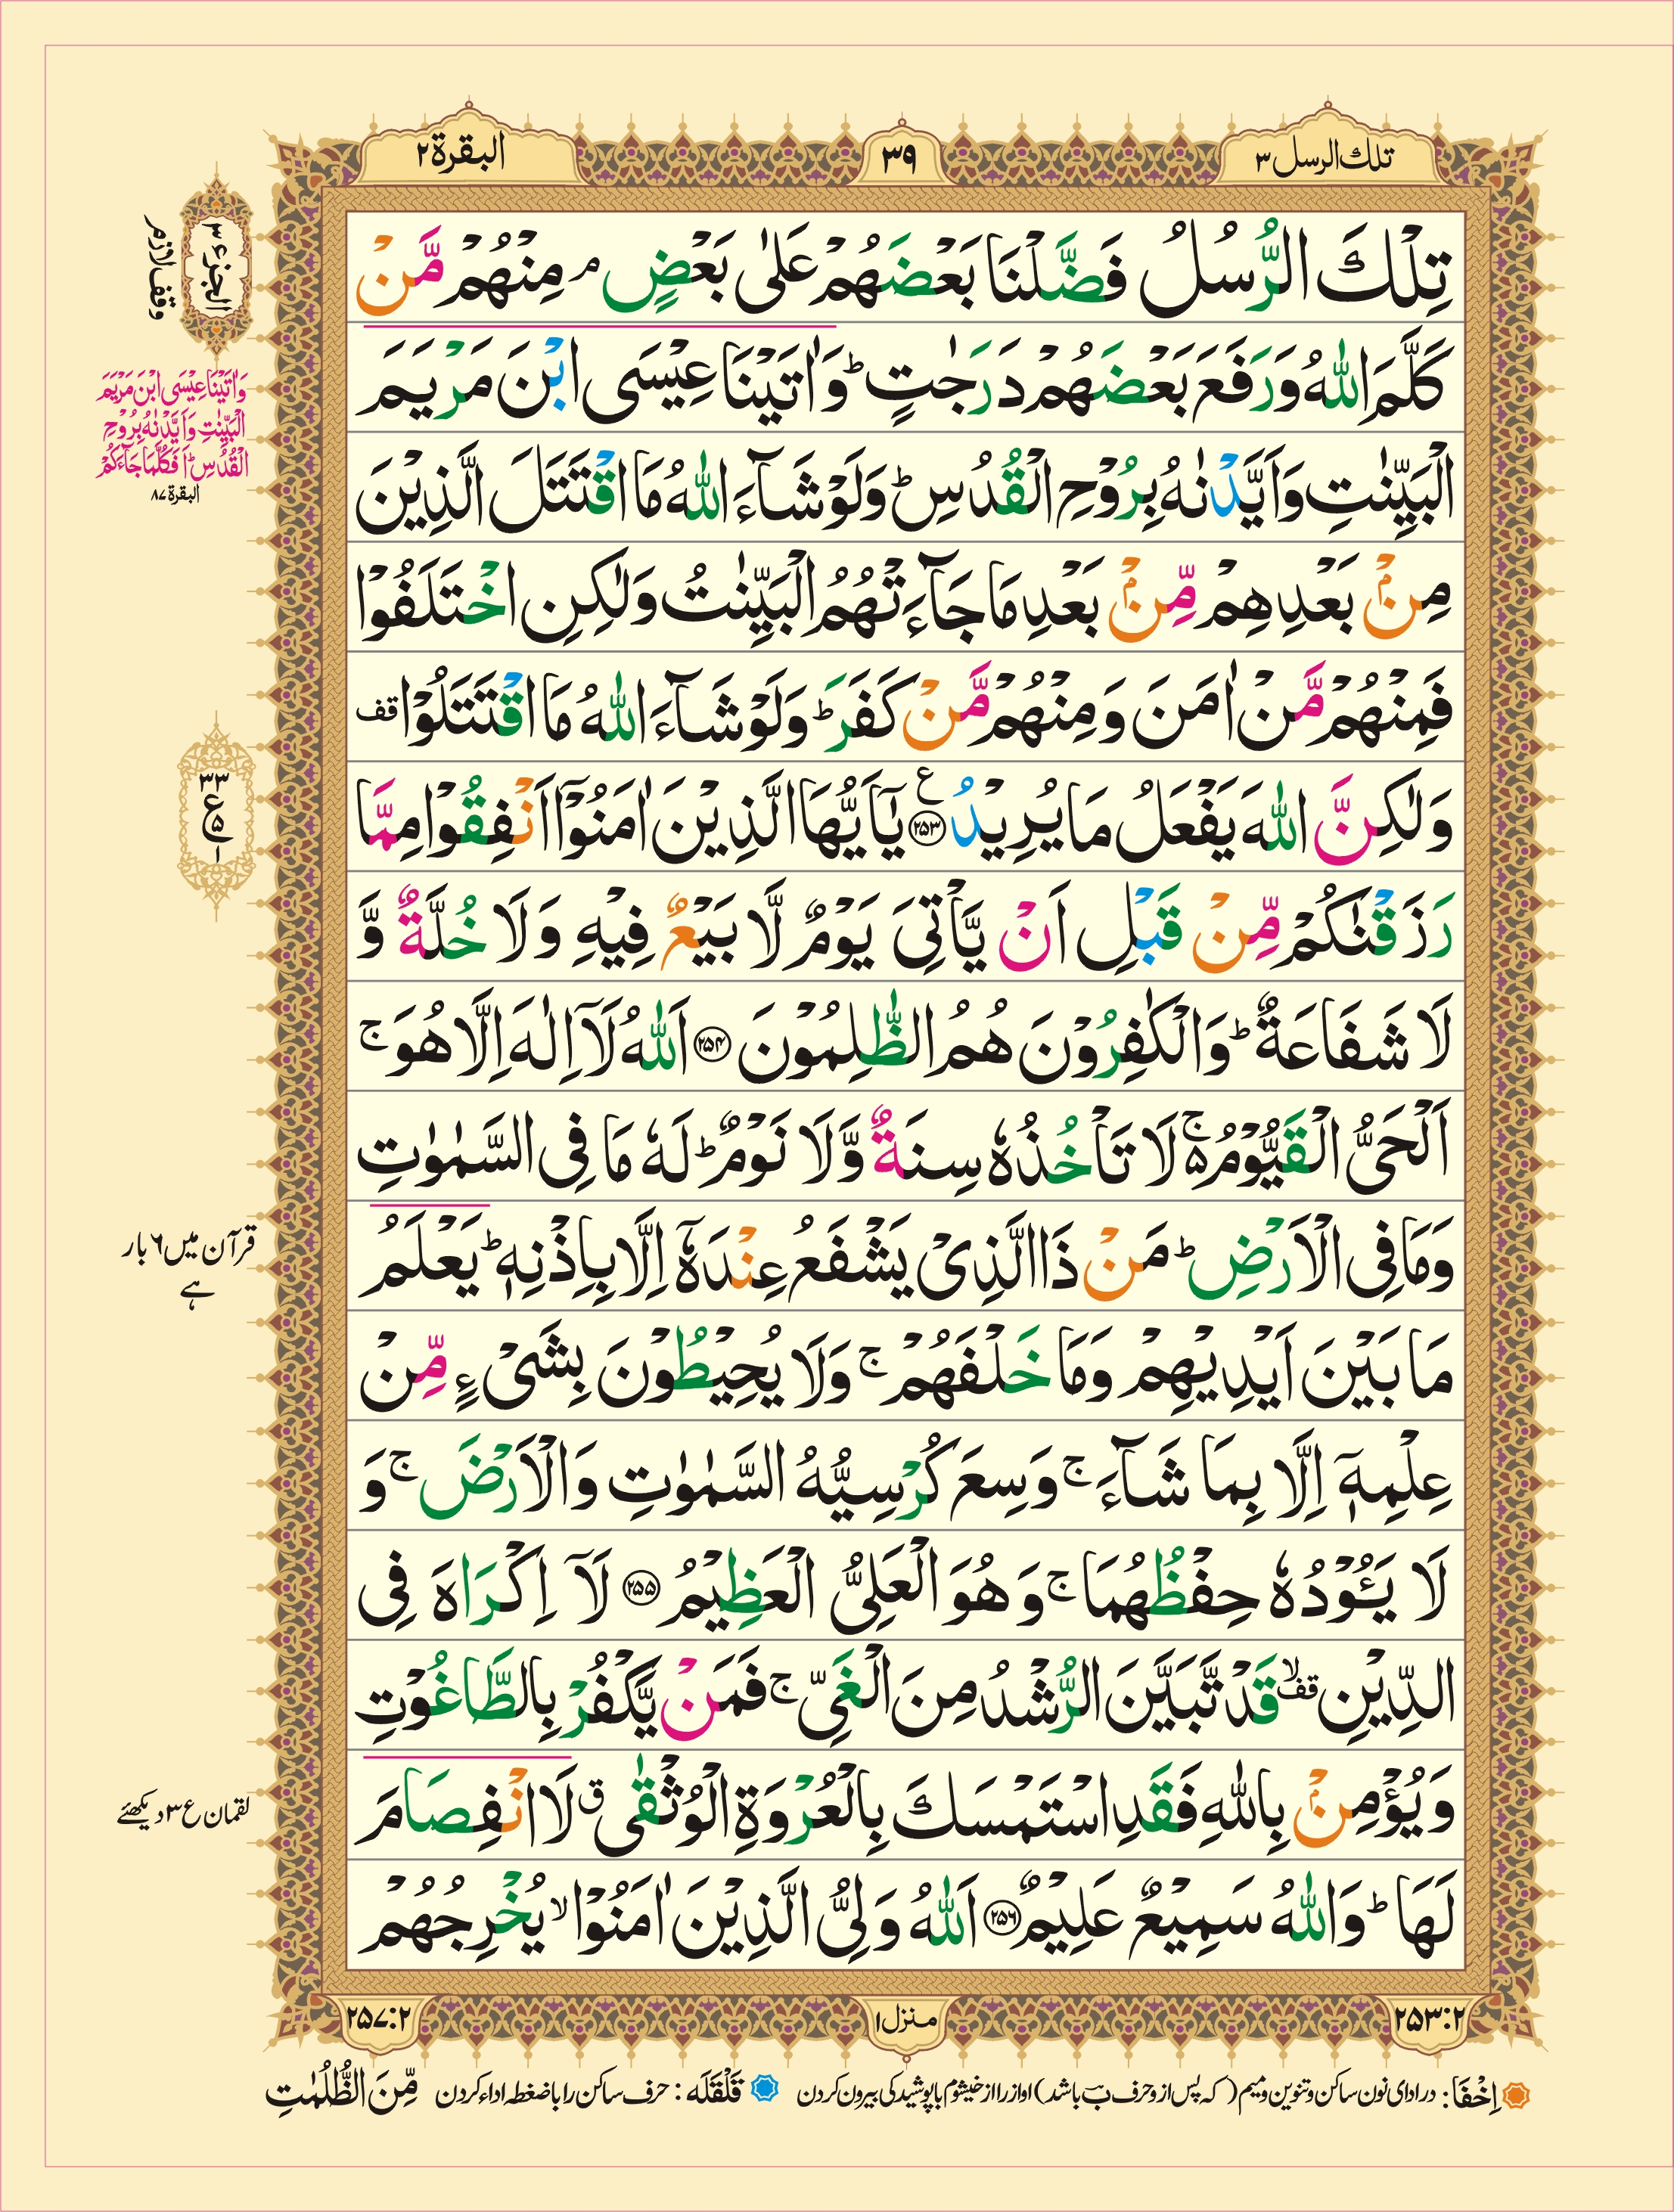 تلك الرسل ۳
۳۹
البقرة ۲
تِلْكَ الرُّسُلُ فَضَّلْنَا بَعْضَهُمْ عَلٰى بَعْضٍ ۘ مِنْهُمْ مَّنْ
كَلَّمَ اللّٰهُ وَرَفَعَ بَعْضَهُمْ دَرَجٰتٍ ؕ وَاٰتَيْنَا عِيْسَى ابْنَ مَرْيَمَ
الْبَيِّنٰتِ وَاَيَّدْنٰهُ بِرُوْحِ الْقُدُسِ ؕ وَلَوْ شَآءَ اللّٰهُ مَا اقْتَتَلَ الَّذِيْنَ
مِنْۢ بَعْدِهِمْ مِّنْۢ بَعْدِ مَا جَآءَتْهُمُ الْبَيِّنٰتُ وَلٰكِنِ اخْتَلَفُوْا
فَمِنْهُمْ مَّنْ اٰمَنَ وَمِنْهُمْ مَّنْ كَفَرَ ؕ وَلَوْ شَآءَ اللّٰهُ مَا اقْتَتَلُوْا قف
وَلٰكِنَّ اللّٰهَ يَفْعَلُ مَا يُرِيْدُ ﴿۲۵۳﴾ ع يٰۤاَيُّهَا الَّذِيْنَ اٰمَنُوْۤا اَنْفِقُوْا مِمَّا
رَزَقْنٰكُمْ مِّنْ قَبْلِ اَنْ يَّاْتِىَ يَوْمٌ لَّا بَيْعٌ فِيْهِ وَلَا خُلَّةٌ وَّ
لَا شَفَاعَةٌ ؕ وَالْكٰفِرُوْنَ هُمُ الظّٰلِمُوْنَ ﴿۲۵۴﴾ اَللّٰهُ لَاۤ اِلٰهَ اِلَّا هُوَ ۚ
اَلْحَىُّ الْقَيُّوْمُ ۵ۚ لَا تَاْخُذُهٗ سِنَةٌ وَّلَا نَوْمٌ ؕ لَهٗ مَا فِى السَّمٰوٰتِ
وَمَا فِى الْاَرْضِ ؕ مَنْ ذَا الَّذِىْ يَشْفَعُ عِنْدَهٗۤ اِلَّا بِاِذْنِهٖ ؕ يَعْلَمُ
مَا بَيْنَ اَيْدِيْهِمْ وَمَا خَلْفَهُمْ ۚ وَلَا يُحِيْطُوْنَ بِشَىْءٍ مِّنْ
عِلْمِهٖۤ اِلَّا بِمَا شَآءَ ۚ وَسِعَ كُرْسِيُّهُ السَّمٰوٰتِ وَالْاَرْضَ ۚ وَ
لَا يَــُٔوْدُهٗ حِفْظُهُمَا ۚ وَهُوَ الْعَلِىُّ الْعَظِيْمُ ﴿۲۵۵﴾ لَاۤ اِكْرَاهَ فِى
الدِّيْنِ قفۙ قَدْ تَّبَيَّنَ الرُّشْدُ مِنَ الْغَىِّ ۚ فَمَنْ يَّكْفُرْ بِالطَّاغُوْتِ
وَيُؤْمِنْۢ بِاللّٰهِ فَقَدِ اسْتَمْسَكَ بِالْعُرْوَةِ الْوُثْقٰى ق لَا انْفِصَامَ
لَهَا ؕ وَاللّٰهُ سَمِيْعٌ عَلِيْمٌ ﴿۲۵۶﴾ اَللّٰهُ وَلِىُّ الَّذِيْنَ اٰمَنُوْا ۙ يُخْرِجُهُمْ
الجزء ۳
وقف لازم
وَاٰتَيْنَا عِيْسَى ابْنَ مَرْيَمَ
الْبَيِّنٰتِ وَاَيَّدْنٰهُ بِرُوْحِ
الْقُدُسِ ؕ اَفَكُلَّمَا جَآءَكُمْ
البقرة ۸۷
۳۳
ع ۵
۱
قرآن میں ۶ بار
ہے
لقمان ع ۳ دیکھئے
۲۵۳:۲
منزل ۱
۲۵۷:۲
اِخْفَا: در ادای نون ساکن و تنوین و میم (که پس از و حرف ب باشد) اواز را از خیشوم با پوشیدگی بیرون کردن
قَلْقَلَه: حرف ساکن را با ضغطه اداء کردن
مِّنَ الظُّلُمٰتِ